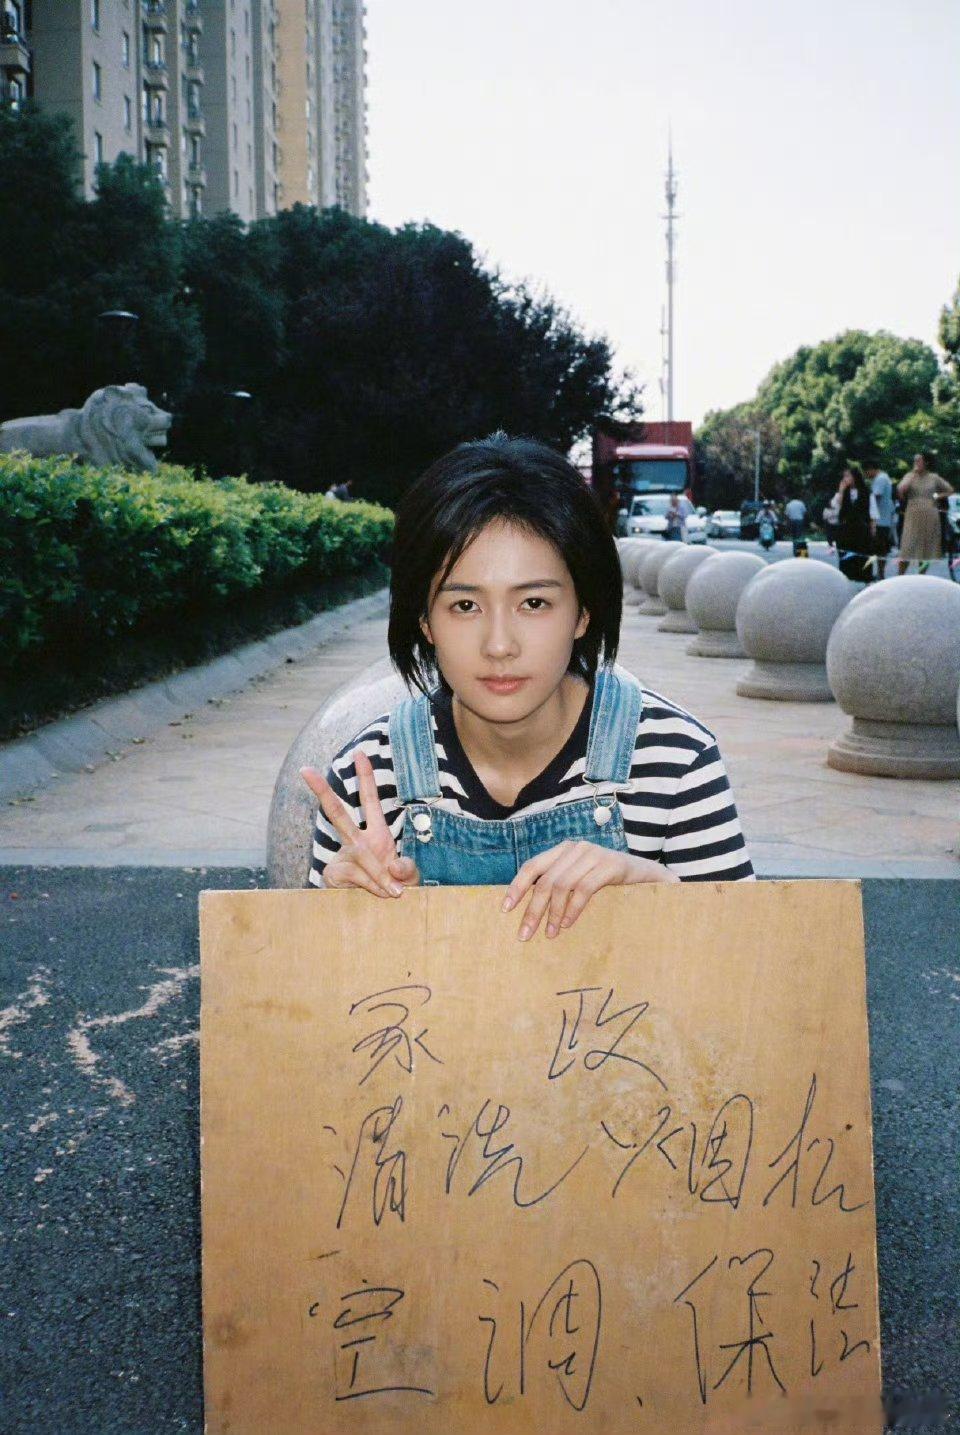 家政
清洗烟机
空调、保洁